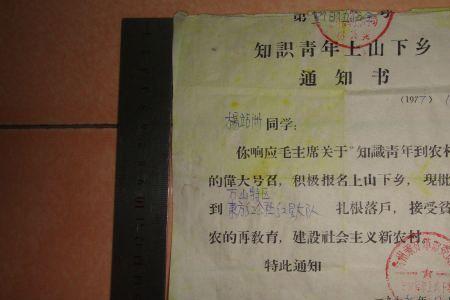 第 号
知識青年上山下乡
通知书
(1977
同学:
你响应毛主席关于“知識青年到农村
的偉大号召,积极报名上山下乡,現批
万山特区
到 扎根落戶,接受貧
农的再敎育,建設社会主义新农村。
特此通知